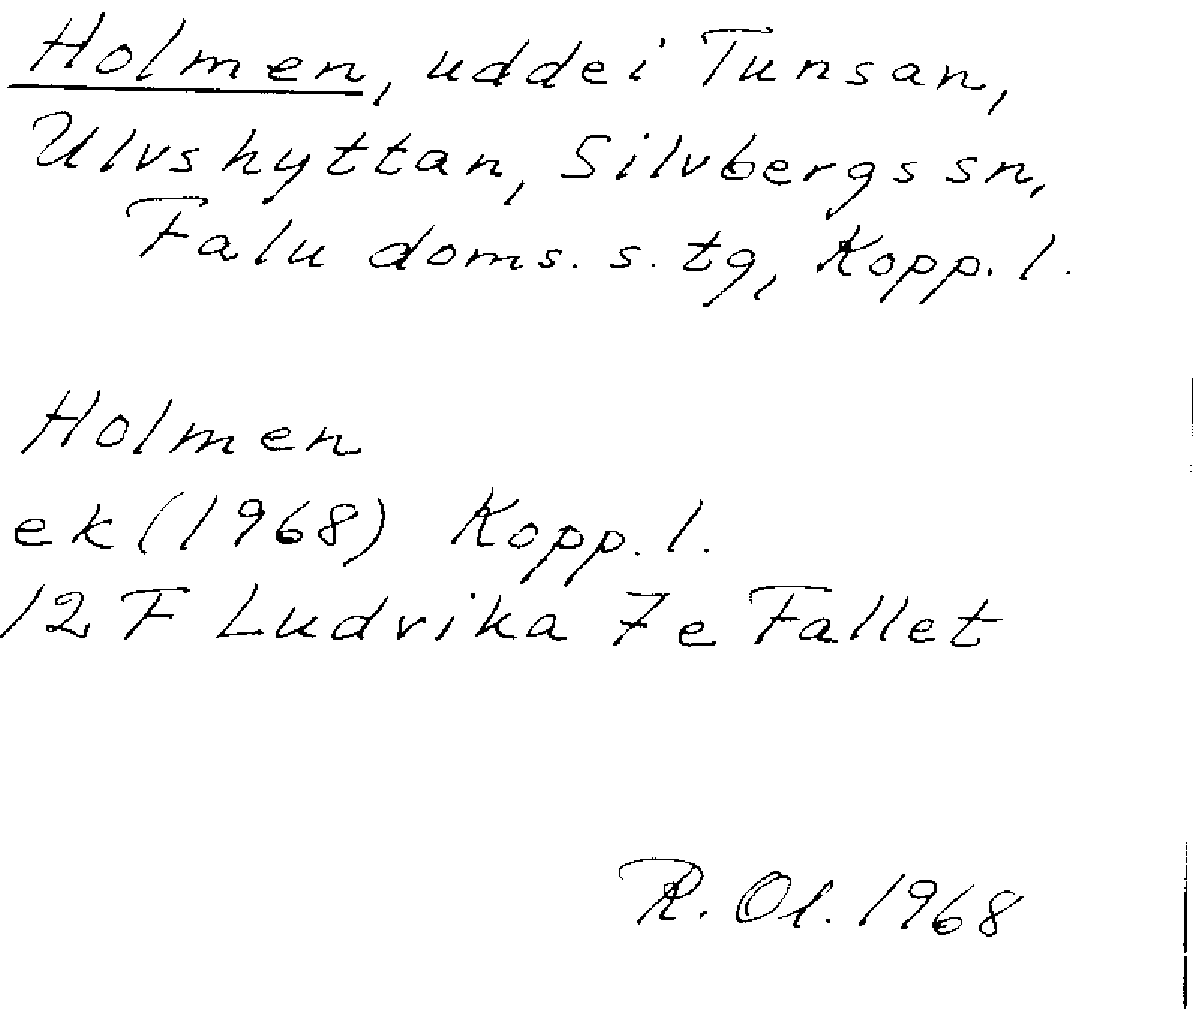 Holmen, udde i Tunsan,
Ulvshyttan, Silvbergs sn,
Falu doms. s. tg, Kopp. l.
Holmen
ek (1968) Kopp. l.
12 F Ludvika 7e Fallet
R. Ol. 1968